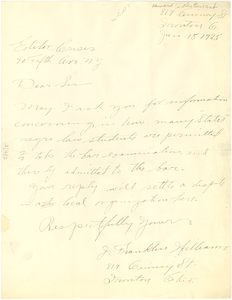 Ironton O.
Jan 15, 1925
Editor Crisis
70 Fifth Ave N.Y.
Dear Sir
May I ask you for information
concerning in how many States
negro law students are permitted
to take the bar examination and
there by admitted to the bar.
Your reply will settle a dispute
in the local
Respectfully Yours
J. Franklin Williams
St.
Ironton Ohio.